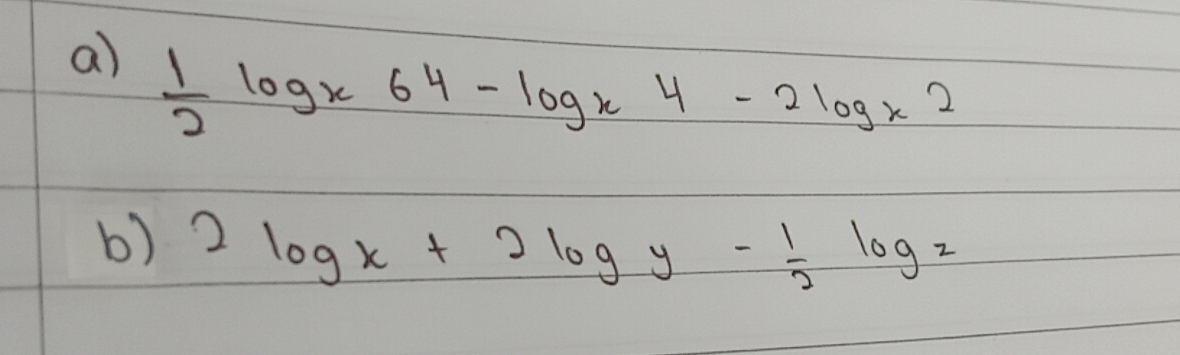 a) 1/2 logx 64 - logx 4 - 2 logx 2
b) 2 log x + 2 log y - 1/2 log z